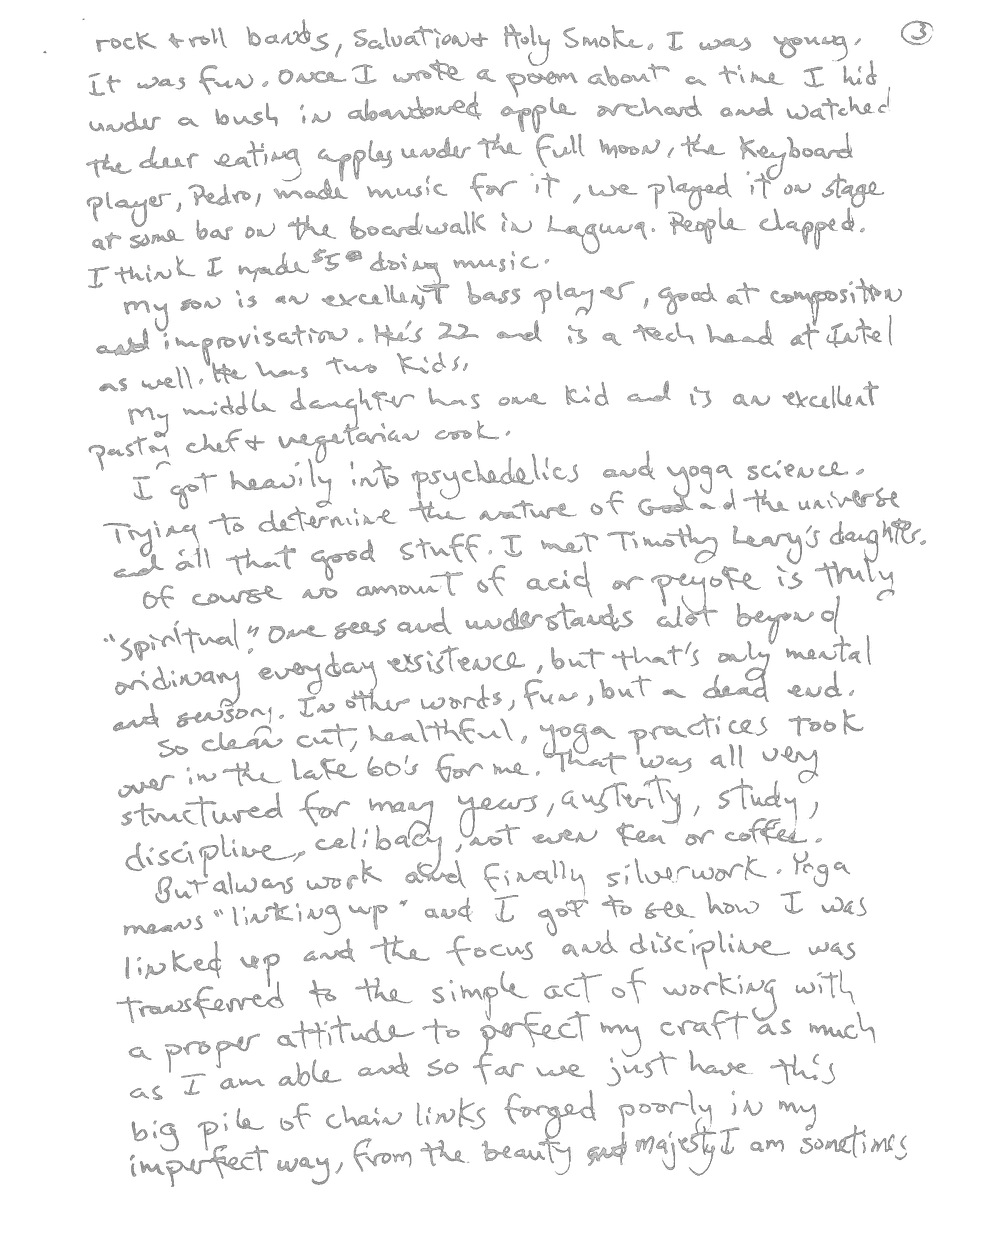 rock + roll bands, Salvation + Holy Smoke. I was young. ③
It was fun. Once I wrote a poem about a time I hid
under a bush in abandoned apple orchard and watched
the deer eating apples under the full moon, the Keyboard
player, Pedro, made music for it, we played it on stage
at some bar on the boardwalk in Laguna. People clapped.
I think I made $5 doing music.
My son is an excellent bass player, good at composition
and improvisation. He's 22 and is a tech head at Intel
as well. He has two kids.
My middle daughter has one kid and is an excellent
pastry chef + vegetarian cook.
I got heavily into psychedelics and yoga science.
Trying to determine the nature of God and the universe
and all that good stuff. I met Timothy Leary's daughter.
Of course no amount of acid or peyote is truly
"spiritual". One sees and understands alot beyond
oridinary everyday exsistence, but that's only mental
and sensory. In other words, fun, but a dead end.
So clean cut, healthful, yoga practices took
over in the late 60's for me. That was all very
structured for many years, austerity, study,
discipline, celibacy, not even tea or coffee.
But always work and finally silverwork. Yoga
means "linking up" and I got to see how I was
linked up and the focus and discipline was
transferred to the simple act of working with
a proper attitude to perfect my craft as much
as I am able and so far we just have this
big pile of chain links forged poorly in my
imperfect way, from the beauty and majesty I am sometimes